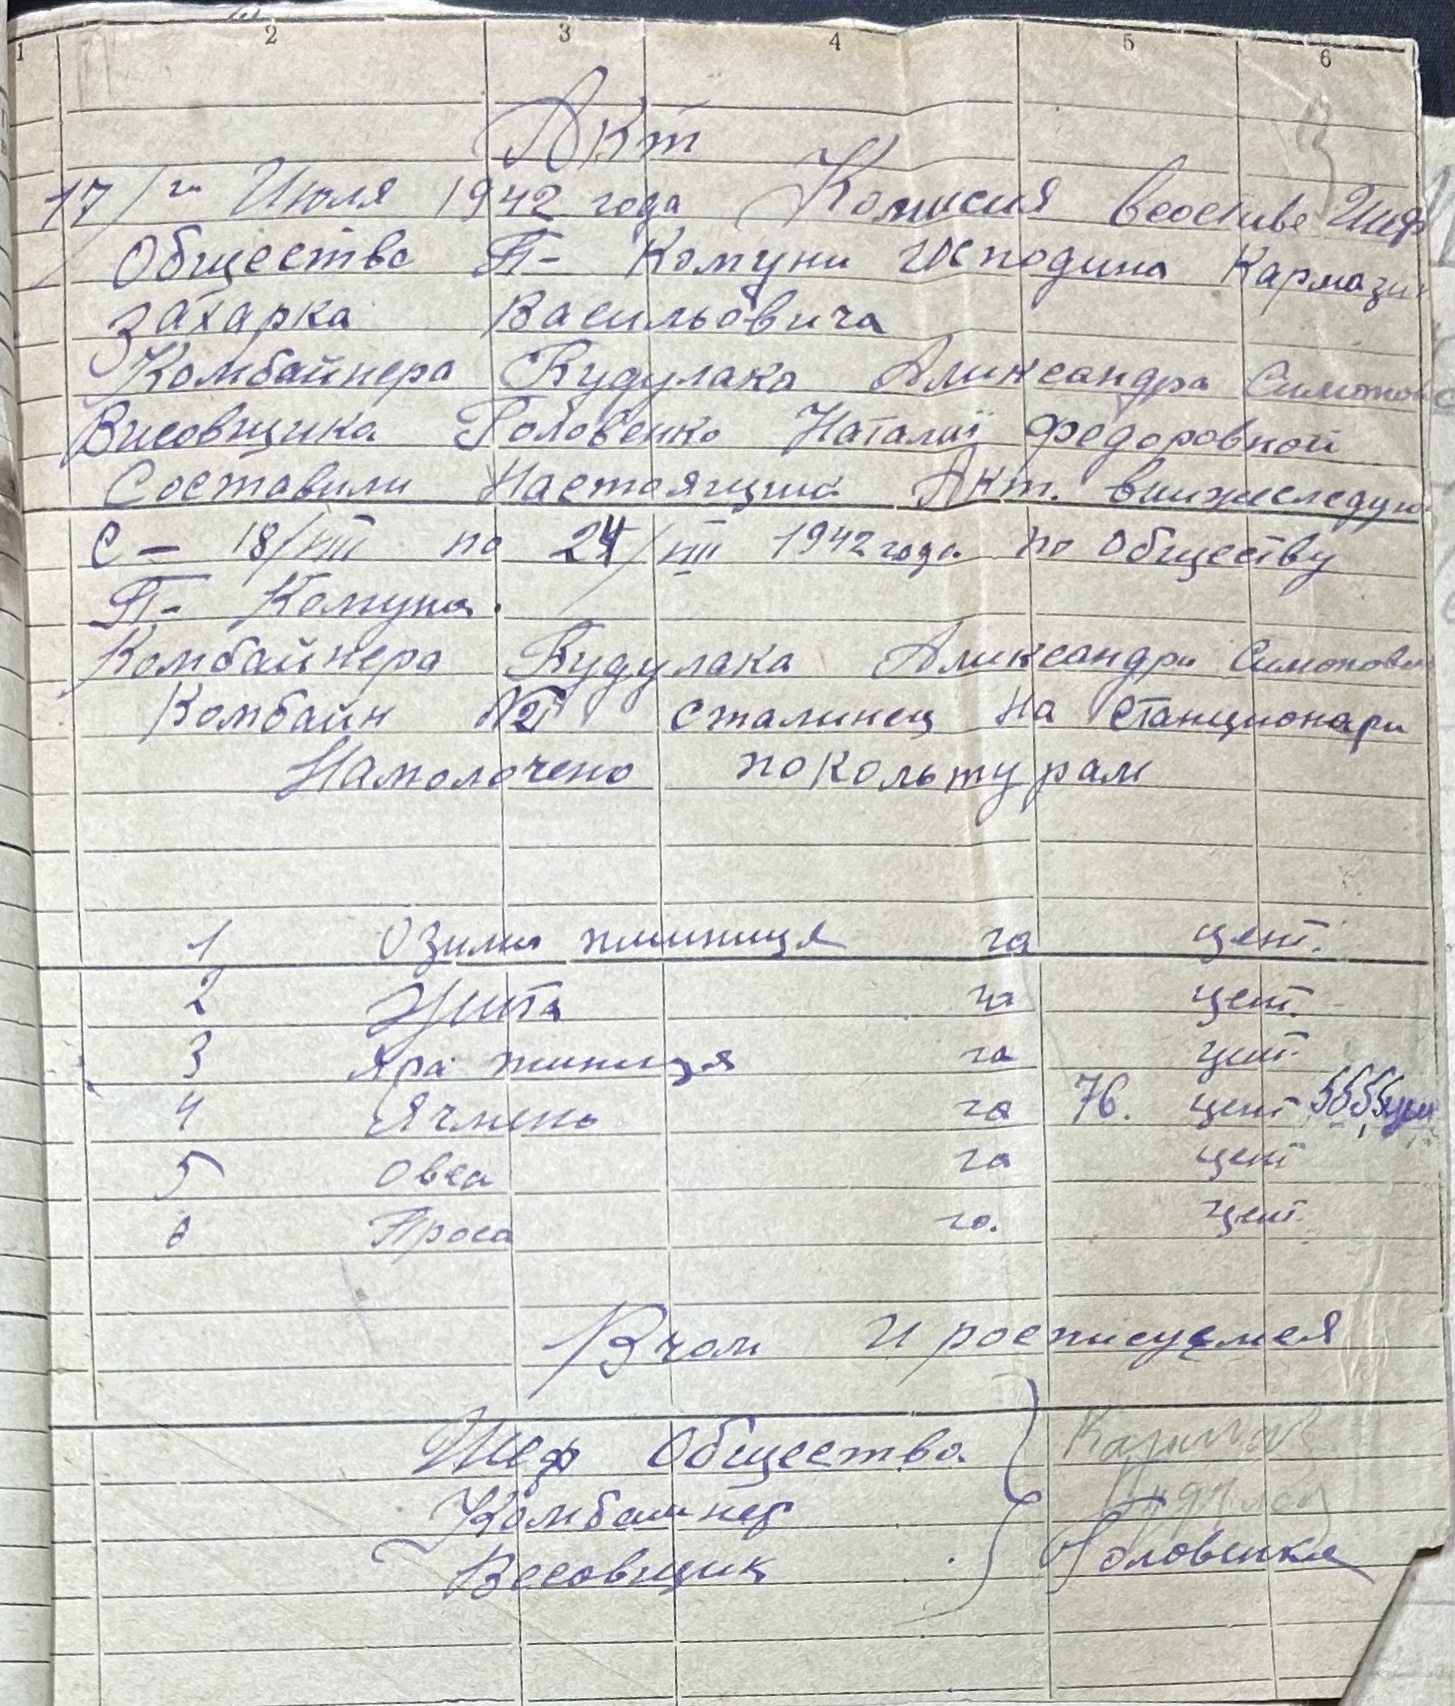 1 2 3 4 5 6
Акт
17/го Июля 1942 года Комисия
Общество П- Комуни Господина Кармазин
Захарка Васильовича
Комбайнера Кудулака Аликсандра Симонов
Висовщика Головенко Наталиї Федоровной
Составили Настоящий Акт. внижеследую
С- 18/VIII по 24/VIII 1942 года по Обществу
П- Комуна.
Комбайнера Кудулака Аликсандри Симонови
Комбайн №2 Сталинец На Станционари
Намолочено покольтурам
1 Озима пшиниця га цент.
2 Жита га цент.
3 Яра пшиниця га цент.
4 Ячмень га 76. цент
5 Овса га цент
6 Проса га. цент.
Вчом И росписуемся
Шеф Общества
Комбайнер
Весовщик Головенко